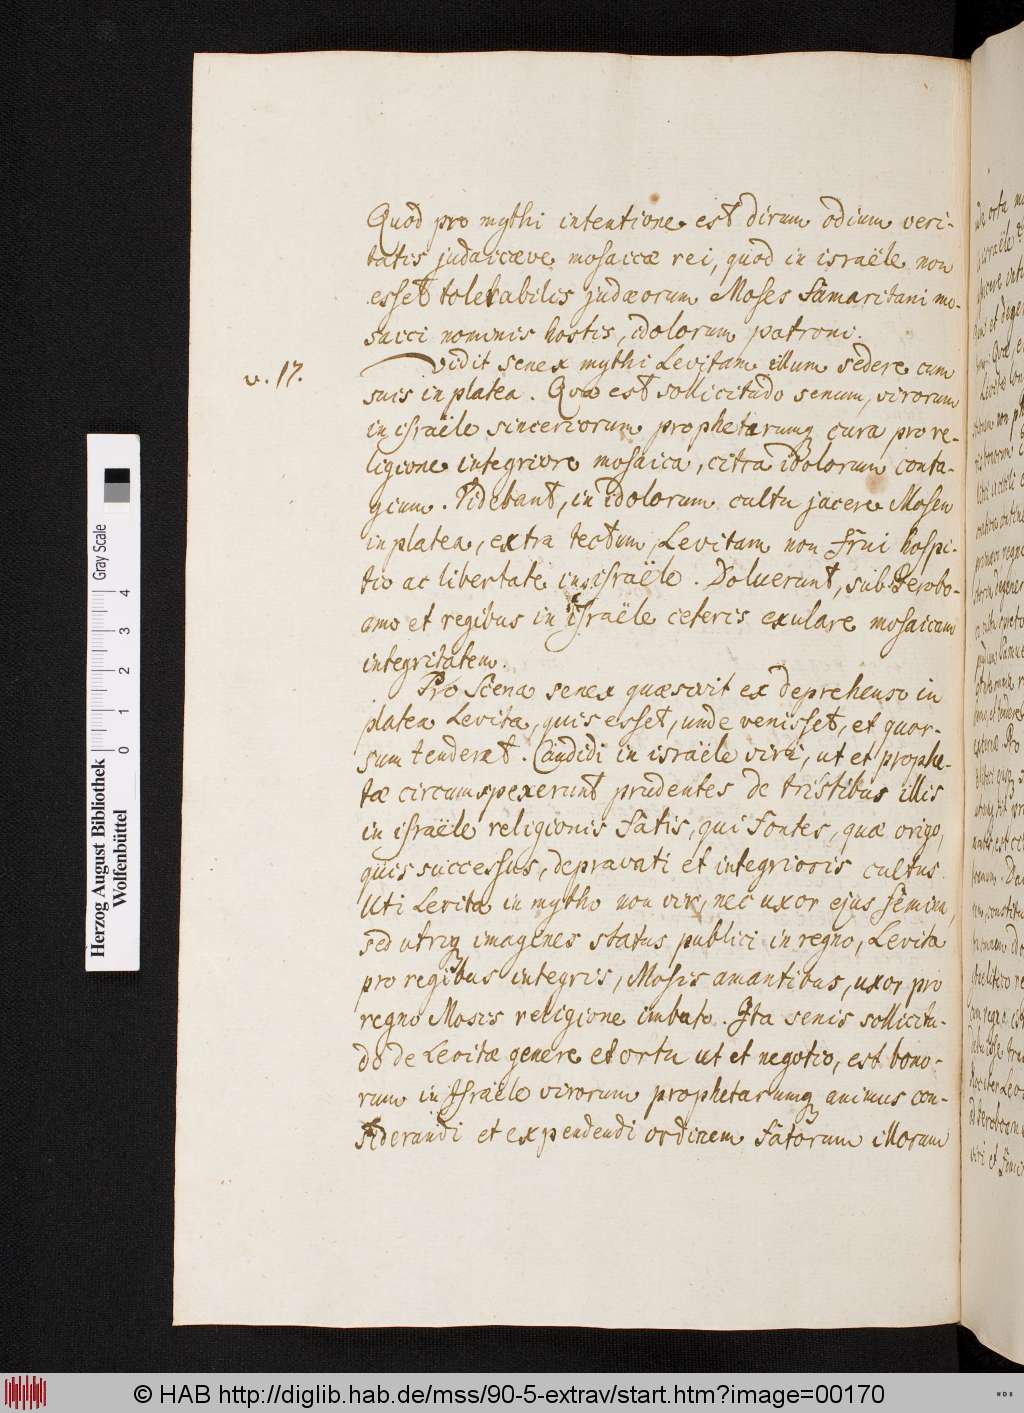 Quod pro mythi intentione est dirum odium veri-
tatis judaicæve mosaicæ rei, quod in israële non
esset tolerabilis judæorum Moses samaritani mo-
saici nominis hostis, idolorum patroni.
v. 17. Vidit senex mythi Levitam illum sedere cum
suis in platea. Qva est sollicitudo senum, virorum
in israële sinceriorum prophetarumq cura pro re-
ligione integriore mosaica, citra idolorum conta-
gium. Videbant, in idolorum cultu jacere Mosen
in platea, extra tectum, Levitam non frui hospi-
tio ac libertate in israële. Doluerunt, sub Jerobo-
amo et regibus in israële ceteris exulare mosaicam
integritatem.
Pro scena senex quæsivit ex deprehenso in
platea Levita, quis esset, unde venisset, et quor-
sum tenderet. Candidi in israële viri, ut et prophe-
tæ circumspexerunt prudentes de tristibus illis
in israële religionis fatis, qui fontes, quæ origo,
quis successus, depravati et integrioris cultus.
Uti Levita in mytho non vir, nec uxor ejus femina,
sed utriq imagines status publici in regno, Levita
pro regibus integris, Mosis amantibus, uxor pro
regno Mosis religione imbuto. Ita senis sollicitu-
do de Levitæ genere et ortu ut et negotio, est bono-
rum in Israële virorum prophetarumq animus con-
siderandi et expendendi ordinem fatorum illorum
Herzog August Bibliothek
Wolfenbüttel
Gray Scale
0 1 2 3 4
© HAB http://diglib.hab.de/mss/90-5-extrav/start.htm?image=00170